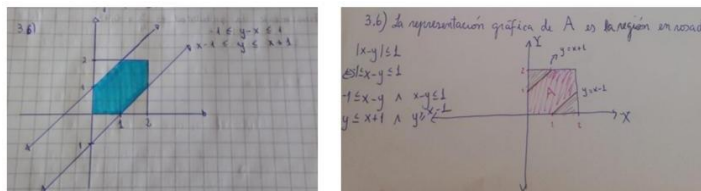 3.6)
-1 ≤ y-x ≤ 1
x-1 ≤ y ≤ x+1
2
1
2
1
3.6) La representación gráfica de A es la región en rosad
|x-y| ≤ 1
-1 ≤ x-y ≤ 1
-1 ≤ x-y ∧ x-y ≤ 1
y ≤ x+1 ∧ y ≥ x-1
Y
y=x+1
2
1
A
y=x-1
1
2
X